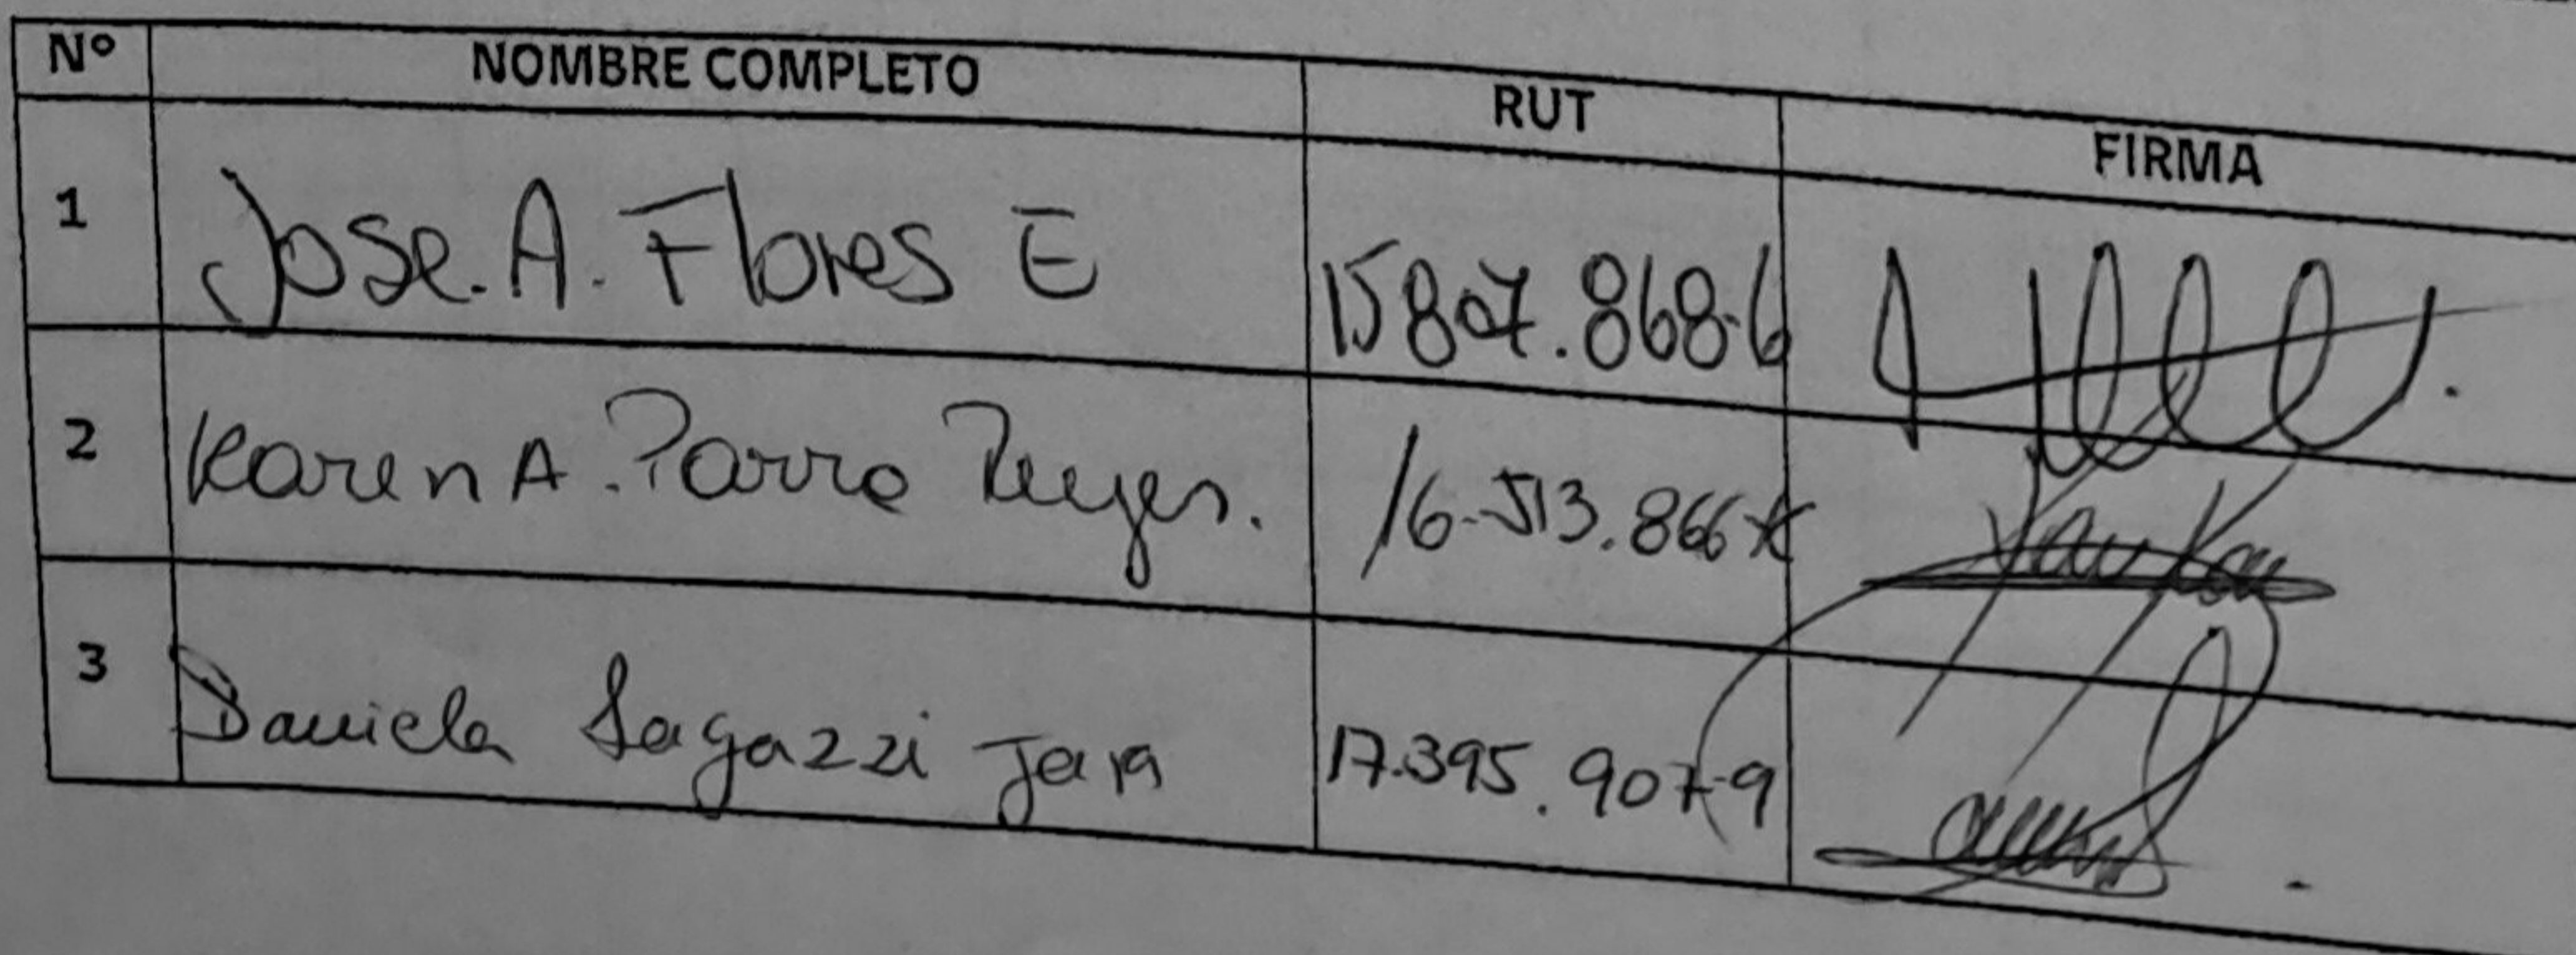 Nº NOMBRE COMPLETO RUT FIRMA
1 Jose. A. Flores E 15807.868-6
2 Karen A. Parra Reyes. 16.513.866-K
3 Daniela Sagazzi Jara 17.395.907-9